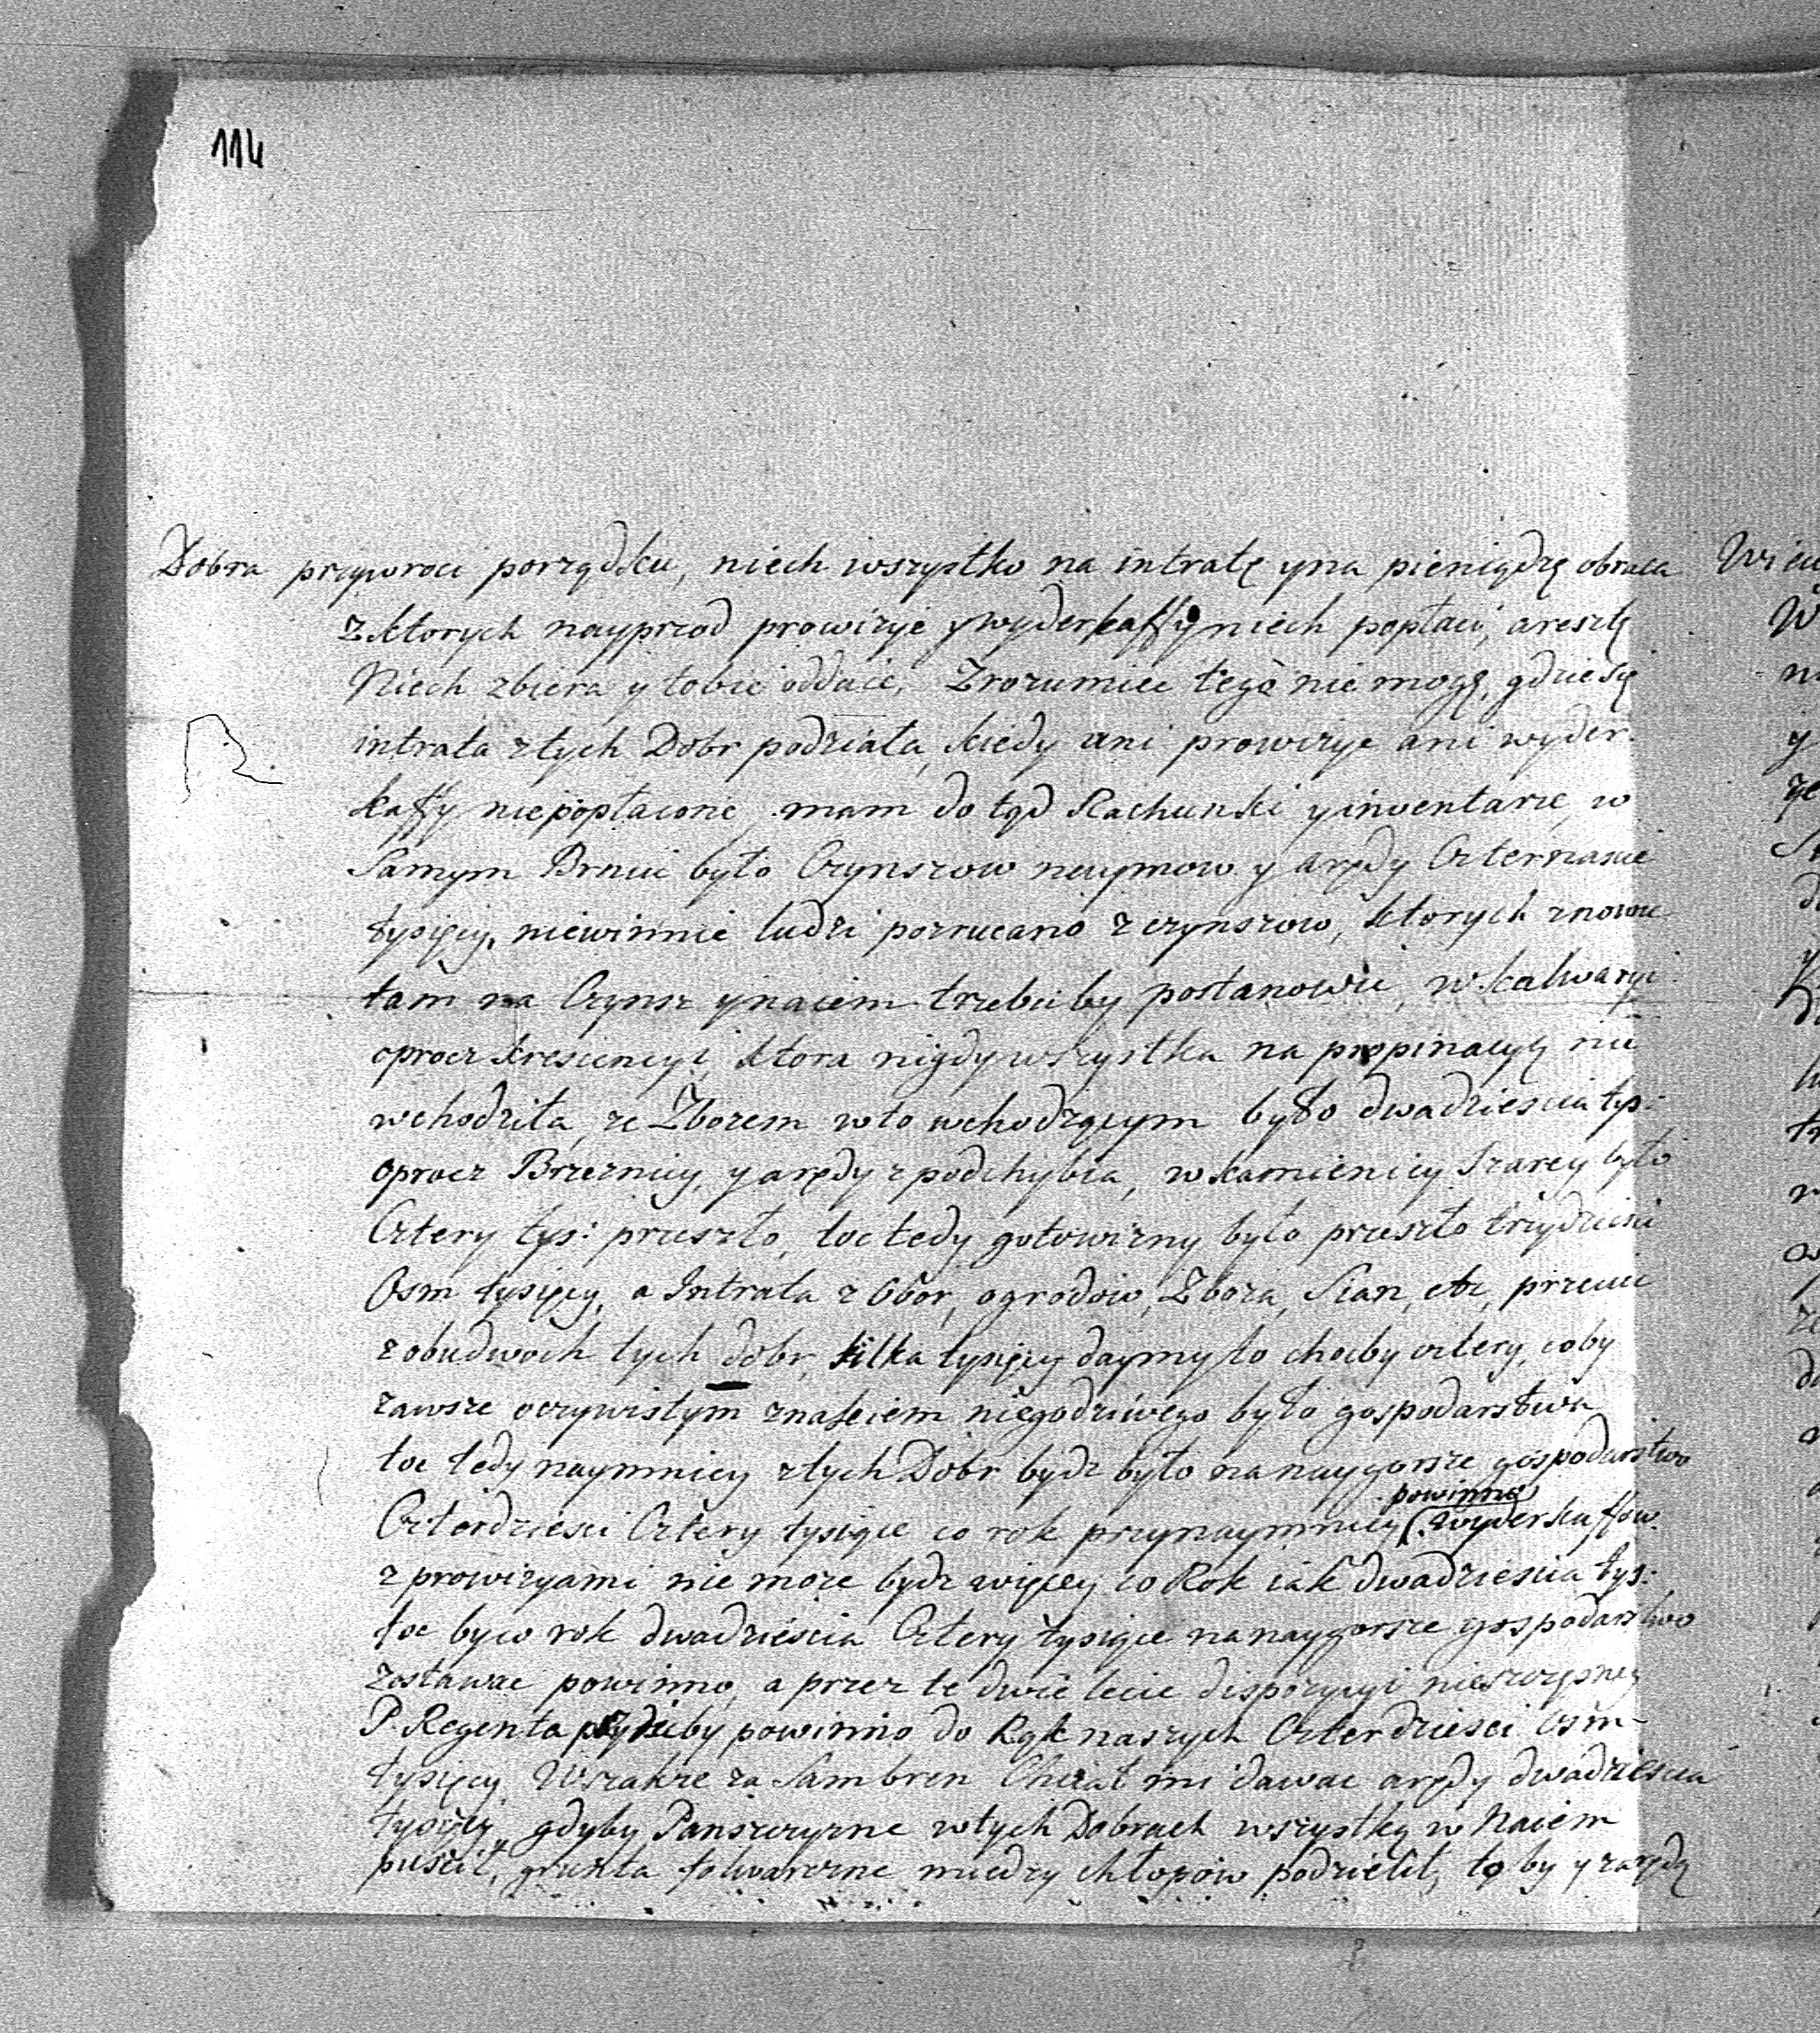 114
Dobra przywroci porządku, niech wszystko na intratę yna pieniądzę obraca
z ktorych nayprzod prowizye y wyderkaffy niech popłaci, aresztę
Niech zbiera y tobie oddaie, Zrozumiec tego nie mogę, gdziesię
intrata ztych Dobr podziała, kiedy ani prowizye ani wyder-
kaffy niepopłacone, mam do tąd Rachunki y inwentarze, w
Samym Brniu było Czynszow naymow y arędy Czternascie
tysięcy, niewinnie ludzi pozrucano z czynszow, ktorych znowu
tam na Czynsz y naiem trzebaby postanowic, w kalwaryi
oprocz krescencyi, ktora nigdy wszystka na propinacyą nie
wchodziła, ze Zbozem wto wchodzącym było dwadziescia tys:
oprocz Brzeznicy, y arędy z podchybia, w kamienicy Szarey było
Cztery tys: przeszło, toc tedy gotowizny było przeszło trzydziesci
Osm tysięcy, a Intrata z Obor, ogrodow, Zboza, Sian, etc, przecie
zobudwoch tych dobr, kilka tysięcy daymy to chocby cztery, coby
zawsze oczywistym znakiem niegodziwego było gospodarstwa
toc tedy naymniey ztych Dobr bydz było na naygorsze gospodarstwo
Czterdziesci Cztery tysiące co rok przynaymniey (powinno) wyderkaffow
z prowizyami nie moze bydz więcey co Rok iak dwadziescia tys:
toc byco rok dwadziescia Cztery tysiące nanaygorsze gospodarstwo
zostawac powinno, a przez te dwie lecie dispozycyi nieszczęsney
P. Regenta przydzby powinno do Rąk naszych Czterdziesci osm
tysięcy. Wszakze za Sam bren Chciał mi dawac arędy dwadziescia
tysięcy, gdyby Panszczyzne wtych Dobrach wszystką w Naiem
puscił, grunta folwarczne miedzy chłopow podzielił, to by y zarędą